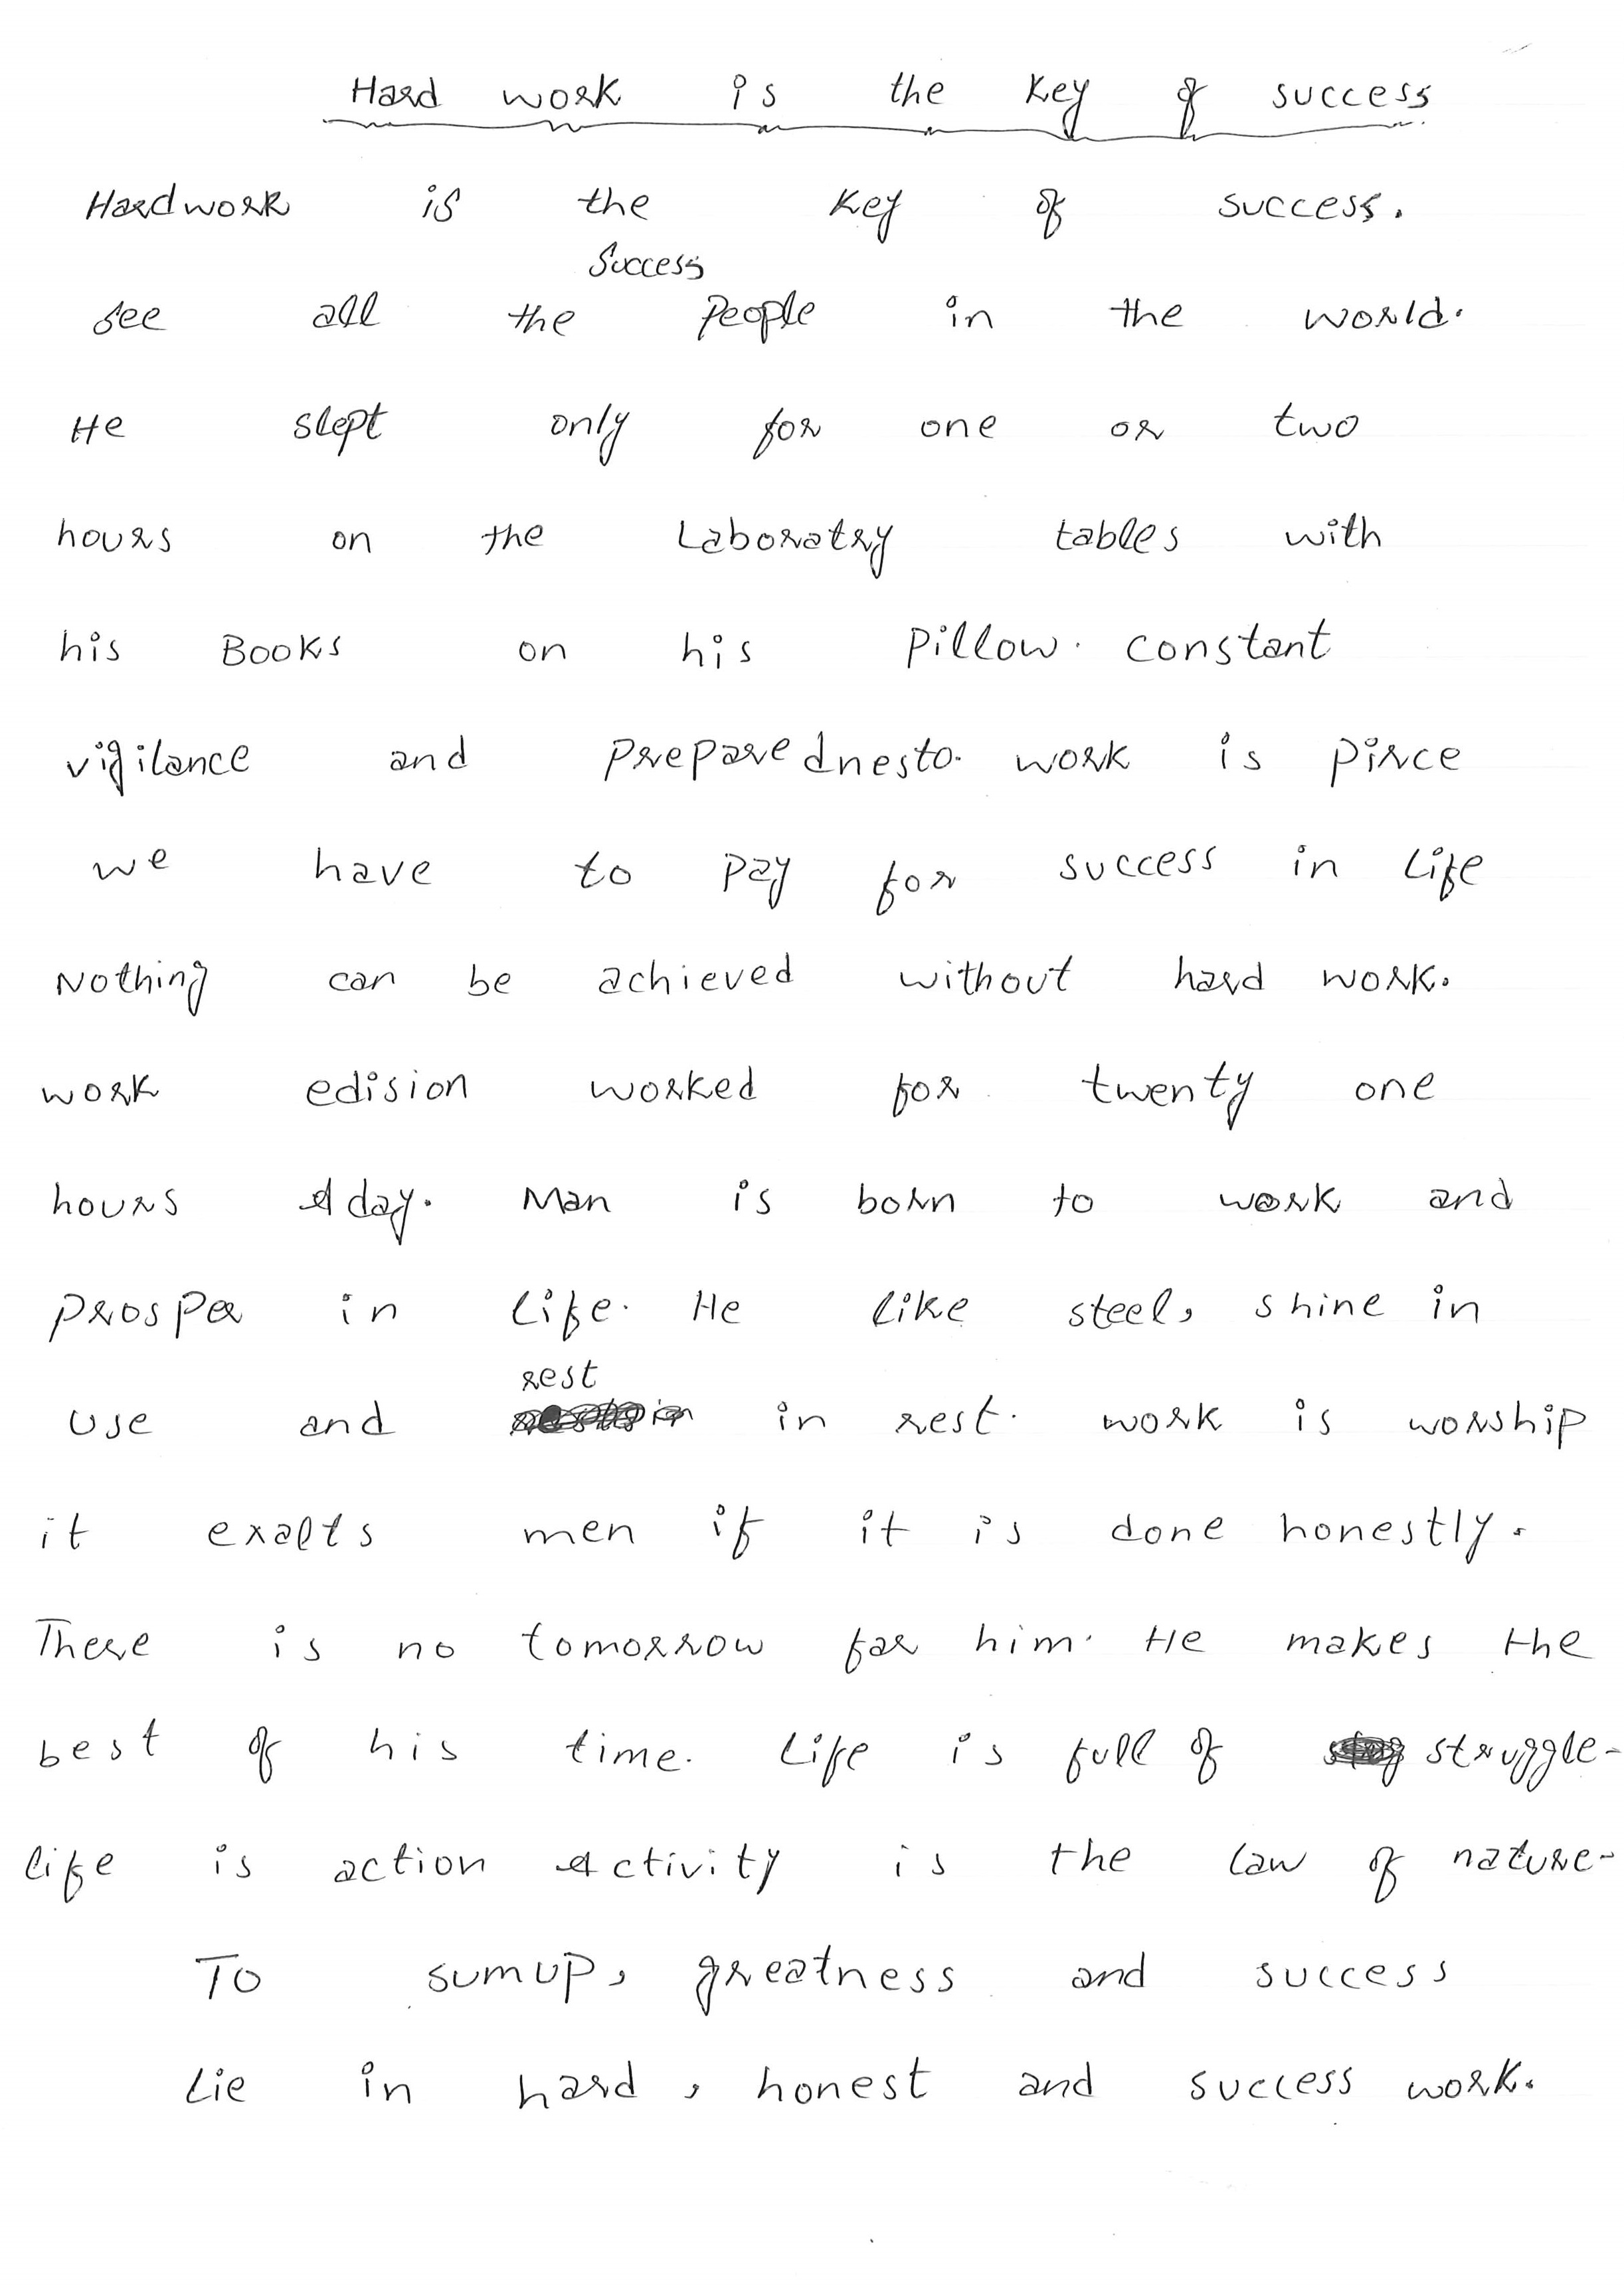 Hard work is the key of success
Hardwork is the key of success.
Success
see all the people in the world.
He slept only for one or two
hours on the Laboratry tables with
his Books on his pillow. constant
vigilance and preparednesto. work is pirce
we have to pay for success in life
Nothing can be achieved without hard work.
work edision worked for twenty one
hours A day. Man is born to work and
prosper in life. He like steel, shine in
rest
use and in rest. work is worship
it exalts men if it is done honestly.
There is no tomorrow for him. He makes the
best of his time. Life is full of struggle-
life is action Activity is the law of nature-
To sumup, greatness and success
Lie in hard, honest and success work.